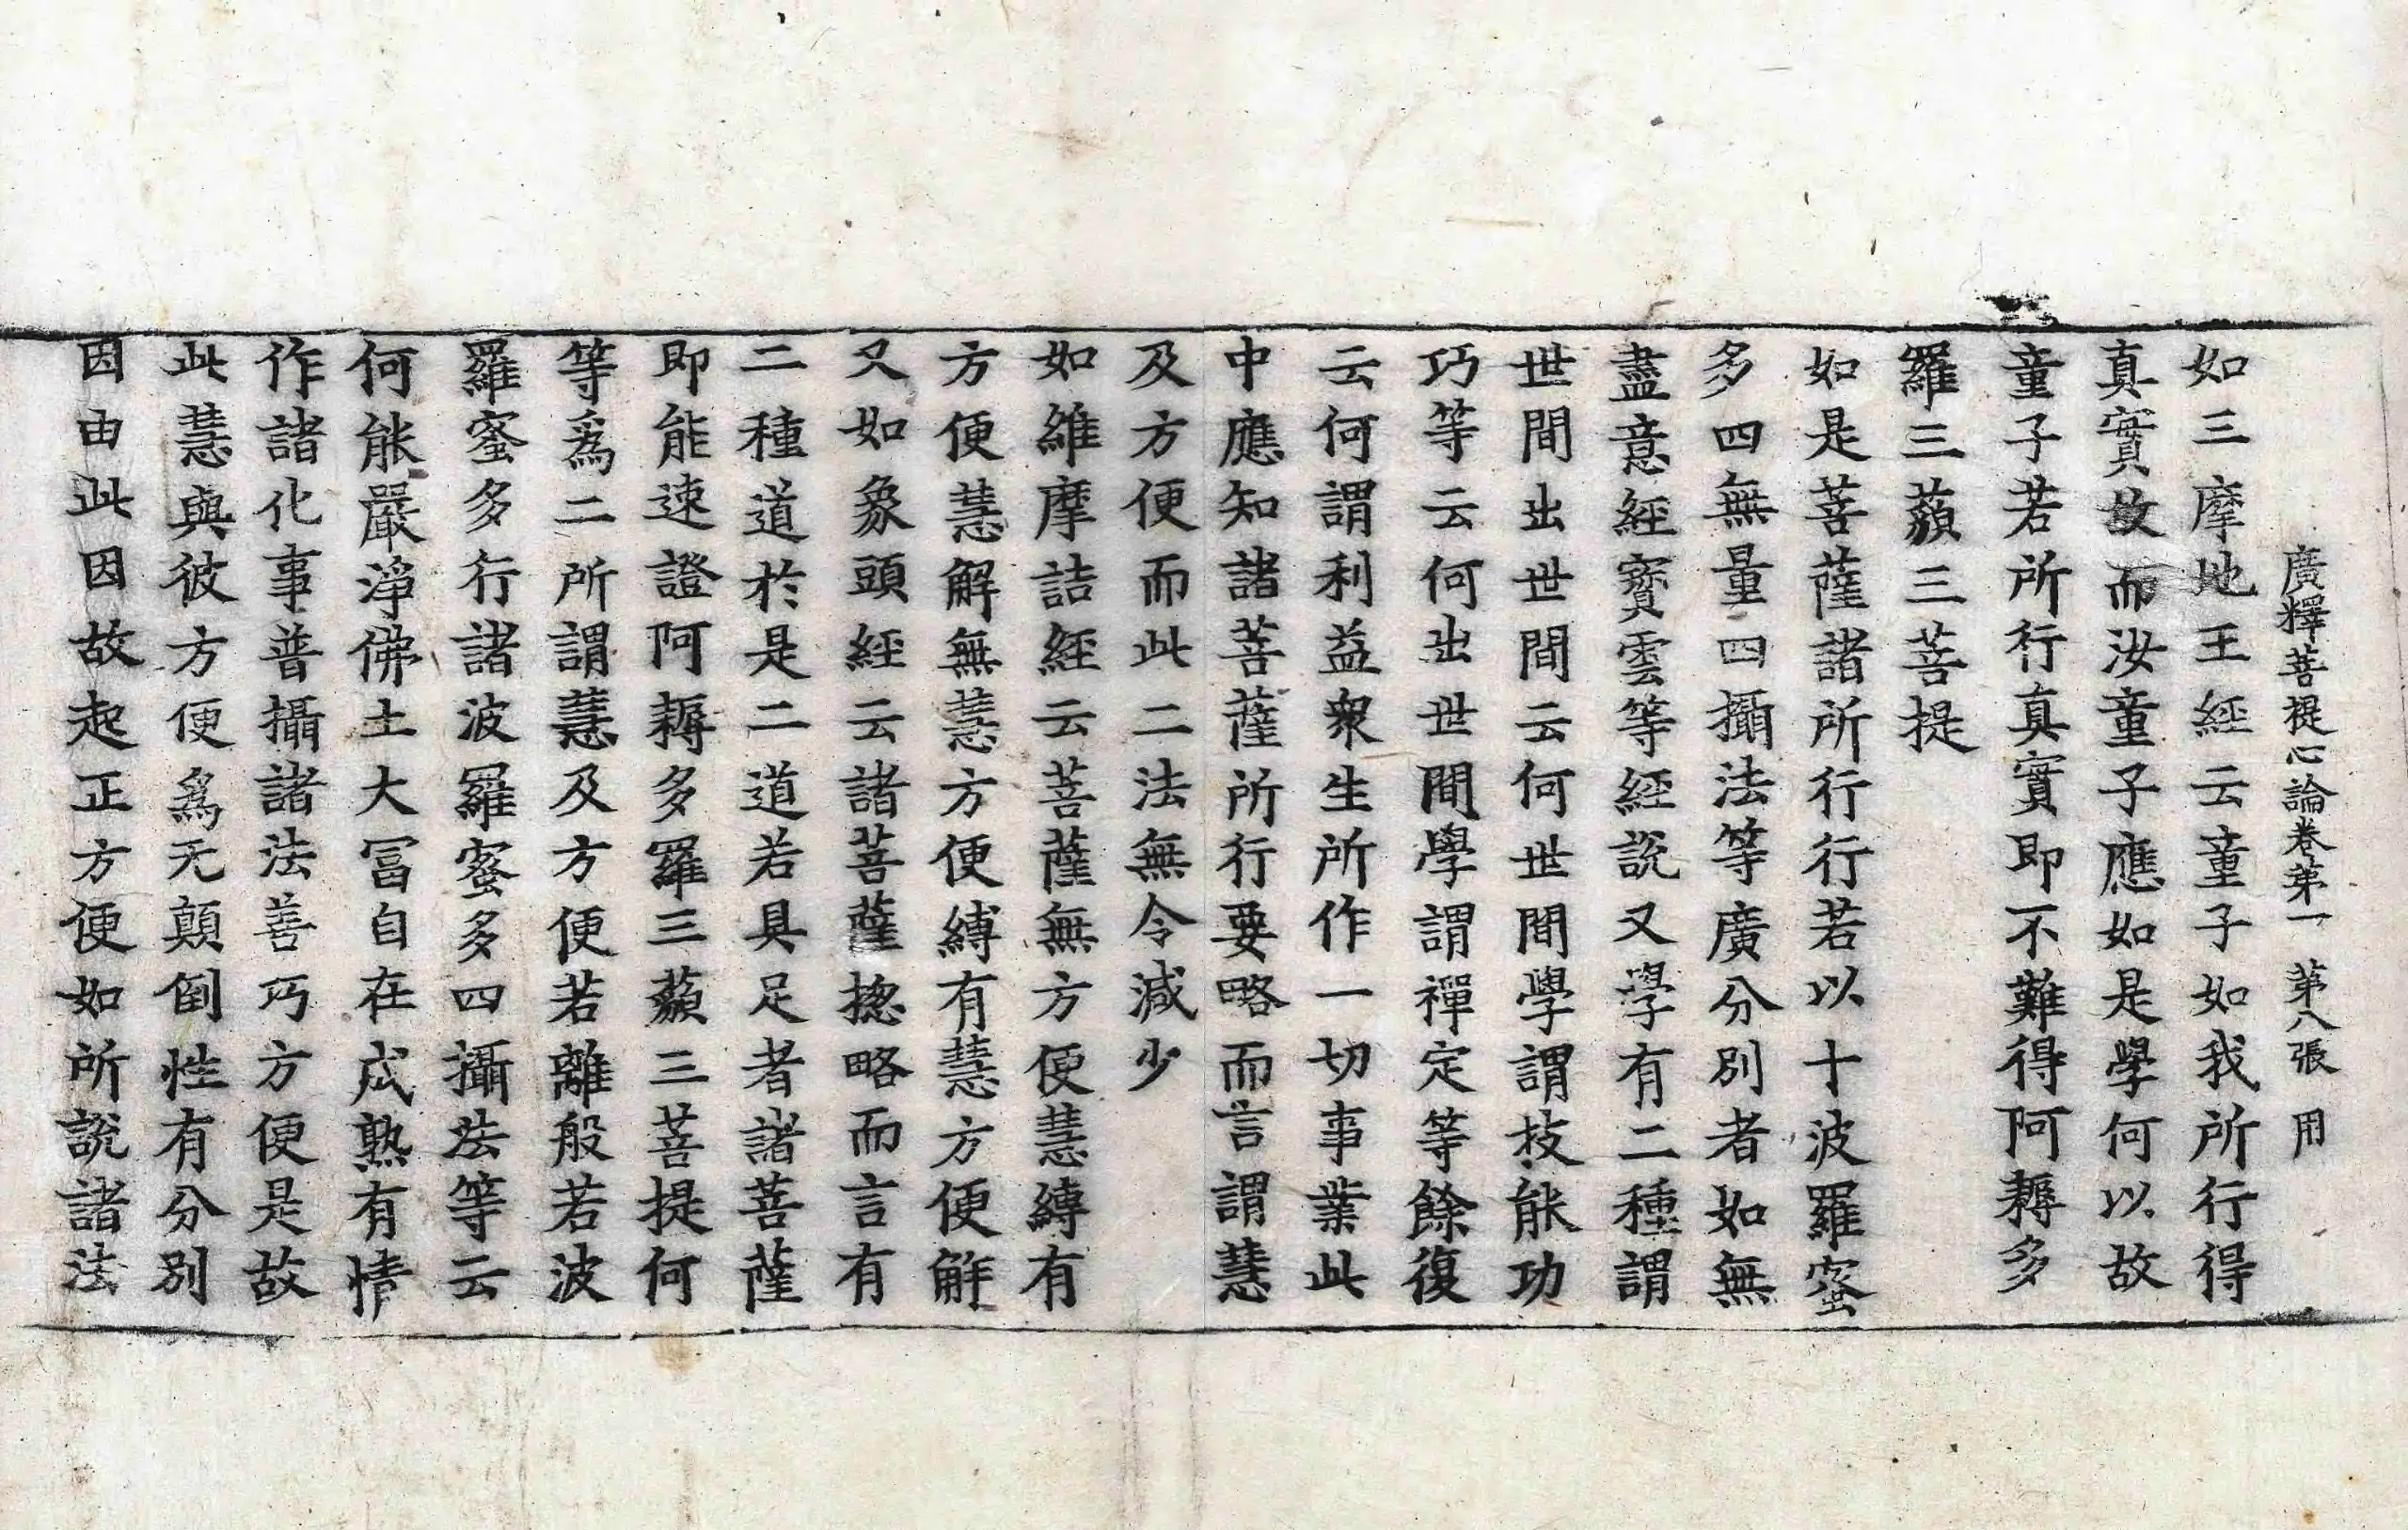 廣釋菩提心論卷苐一 苐八張 用
如三摩地王經云童子如我所行得
真實故而汝童子應如是學何以故
童子若所行真實即不難得阿耨多
羅三藐三菩提
如是菩薩諸所行行若以十波羅蜜
多四無量四攝法等廣分別者如無
盡意經寶雲等經說又學有二種謂
世間出世間云何世間學謂技能功
巧等云何出世間學謂禪定等餘復
云何謂利益衆生所作一切事業此
中應知諸菩薩所行要略而言謂慧
及方便而此二法無令減少
如維摩詰經云菩薩無方便慧縛有
方便慧解無慧方便縛有慧方便解
又如象頭經云諸菩薩揔略而言有
二種道於是二道若具足者諸菩薩
即能速證阿耨多羅三藐三菩提何
等爲二所謂慧及方便若離般若波
羅蜜多行諸波羅蜜多四攝法等云
何能嚴淨佛土大冨自在成熟有情
作諸化事普攝諸法善巧方便是故
此慧與彼方便爲无顛倒性有分別
因由此因故起正方便如所說諸法